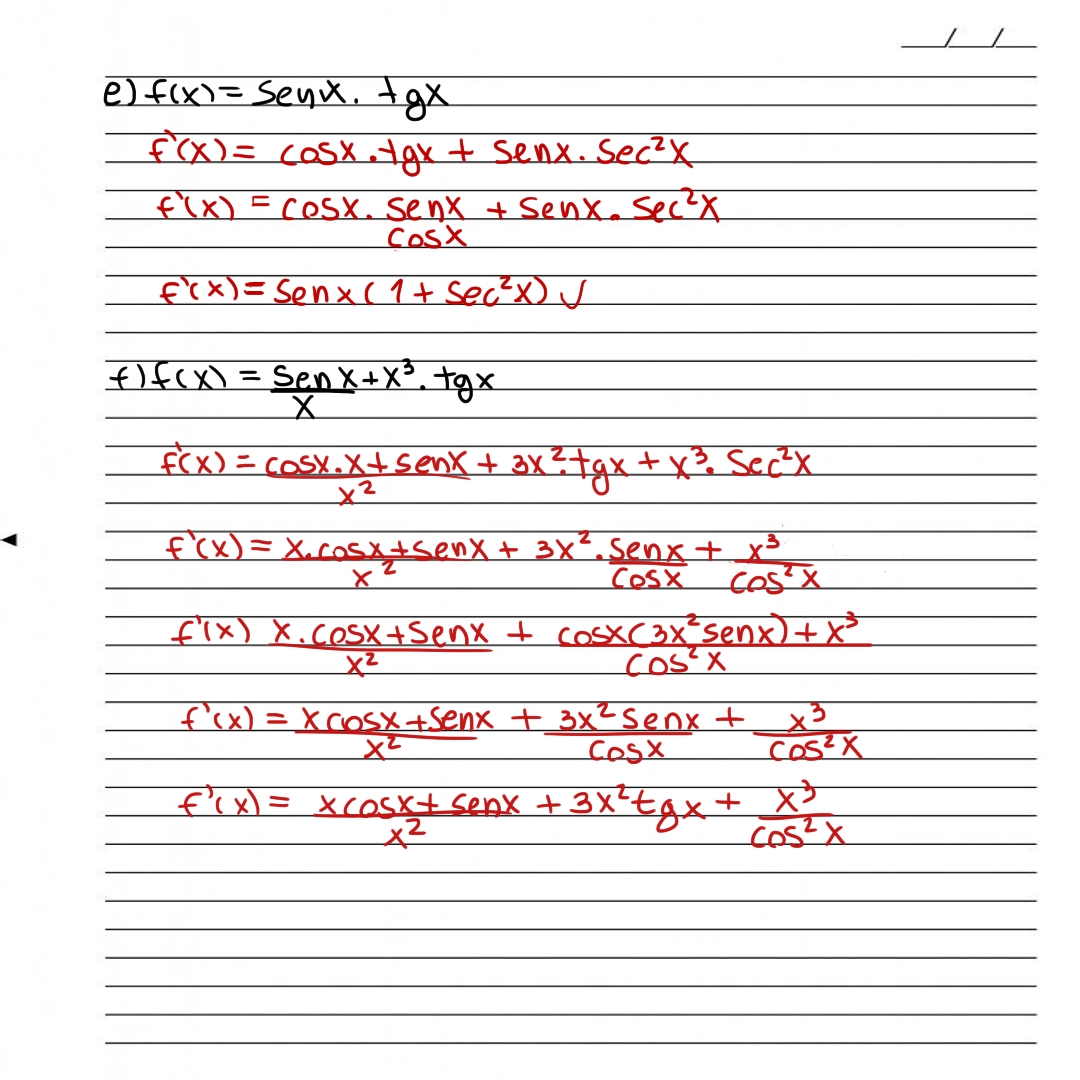 __/__/__
e) f(x) = senx . tgx
f'(x) = cosx . tgx + senx . sec²x
f'(x) = cosx . senx/cosx + senx . sec²x
f'(x) = senx ( 1 + sec²x) ✓
f) f(x) = senx/x + x³ . tgx
f'(x) = (cosx.x + senx)/x² + 3x².tgx + x³. sec²x
f'(x) = (x.cosx + senx)/x² + 3x² . senx/cosx + x³/cos²x
f'(x) (x.cosx + senx)/x² + (cosx(3x²senx) + x³)/cos²x
f'(x) = (xcosx + senx)/x² + 3x²senx/cosx + x³/cos²x
f'(x) = (xcosx + senx)/x² + 3x²tgx + x³/cos²x